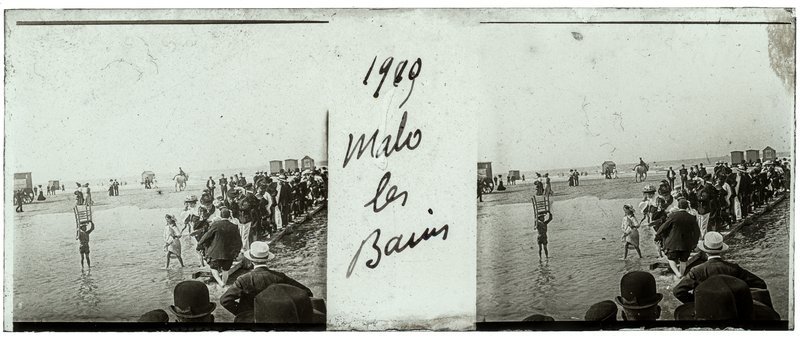 1909
Malo
les
Bains